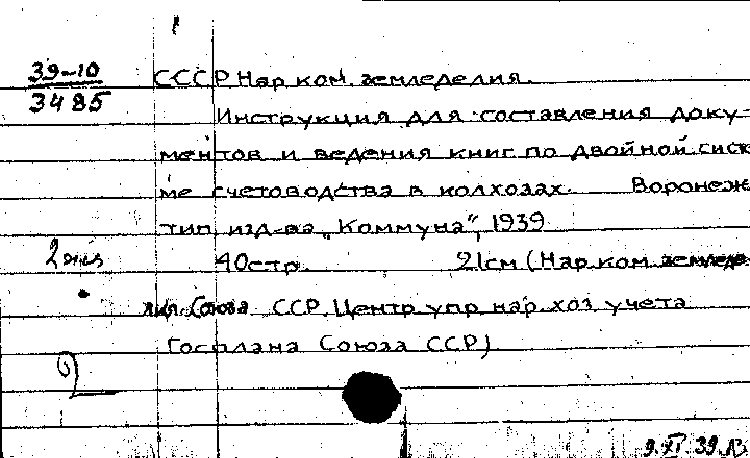 39-10
3485
СССР Нар. ком. земледелия.
Инструкция для составления доку-
ментов и ведения книг по двойной сист
ме счетоводства в колхозах. Воронеж
тип. изд-ва „Коммуна", 1939
2 экз 40стр. 21см (Нар. ком. земледе-
лия. Союза ССР. Центр. упр. нар. хоз. учета
Госплана Союза ССР)
9.XI.39.